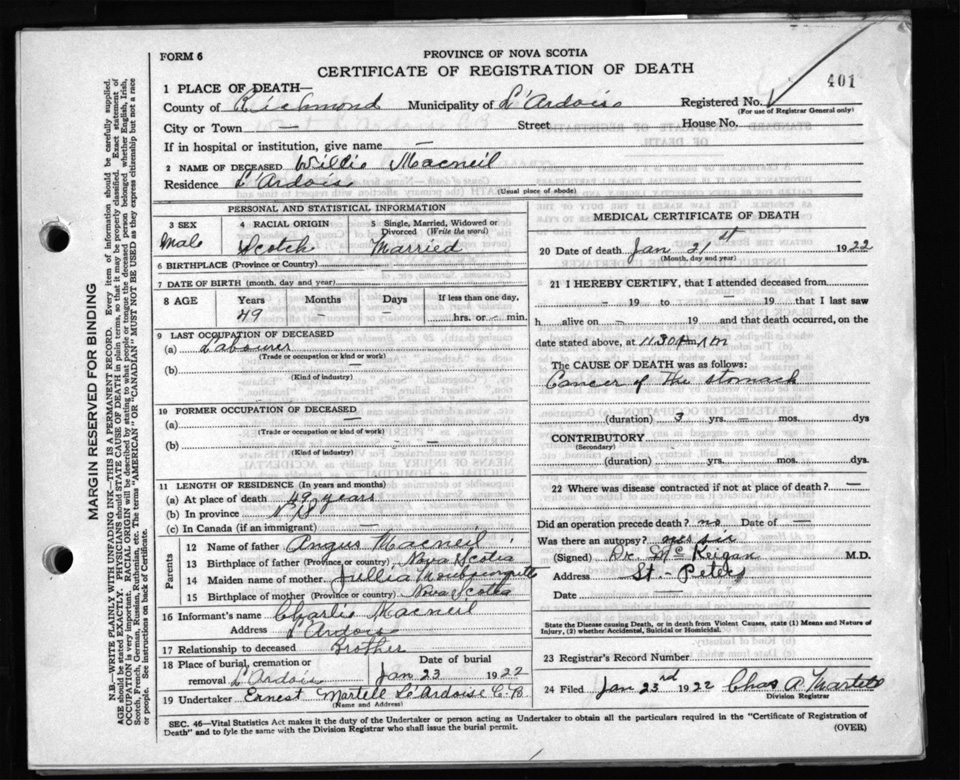 FORM 6
PROVINCE OF NOVA SCOTIA
CERTIFICATE OF REGISTRATION OF DEATH
401
1 PLACE OF DEATH—
County of Richmond Municipality of L'Ardoise Registered No.
(For use of Registrar General only)
City or Town — Street House No.
If in hospital or institution, give name —
2 NAME OF DECEASED Willie Macneil
Residence L'Ardoise
(Usual place of abode)
PERSONAL AND STATISTICAL INFORMATION
3 SEX 4 RACIAL ORIGIN 5 Single, Married, Widowed or Divorced (Write the word)
Male Scotch Married
6 BIRTHPLACE (Province or Country)
7 DATE OF BIRTH (month, day and year)
8 AGE Years Months Days If less than one day,
49 — — hrs. or — min.
9 LAST OCCUPATION OF DECEASED
(a) Labourer
(Trade or occupation or kind or work)
(b) —
(Kind of industry)
10 FORMER OCCUPATION OF DECEASED
(a) —
(Trade or occupation or kind of work)
(b) — — —
(Kind of industry)
11 LENGTH OF RESIDENCE (In years and months)
(a) At place of death 49 years
(b) In province N.S.
(c) In Canada (if an immigrant) —
Parents
12 Name of father Angus Macneil
13 Birthplace of father (Province or country) Nova Scotia
14 Maiden name of mother Jullia
15 Birthplace of mother (Province or country) Nova Scotia
16 Informant's name Charlie Macneil
Address L'Ardois
17 Relationship to deceased Brother
18 Place of burial, cremation or removal L'Ardois Date of burial Jan 23 1922
19 Undertaker Ernest Martell L'Ardoise C.B.
(Name and Address)
MEDICAL CERTIFICATE OF DEATH
20 Date of death Jan 21st 1922
(Month, day and year)
21 I HEREBY CERTIFY, that I attended deceased from
— 19 to — 19 that I last saw
h alive on — 19 and that death occurred, on
date stated above, at 11.30 m
The CAUSE OF DEATH was as follows:
Cancer of the stomach
(duration) 3 yrs. — mos. dys
CONTRIBUTORY
(Secondary)
(duration) yrs. — mos. dys
22 Where was disease contracted if not at place of death? —
Did an operation precede death? no Date of —
Was there an autopsy?
(Signed) Dr. McKeigan M.D.
Address St - Peters
Date —
State the Disease causing Death, or in death from Violent Causes, state (1) Means and Nature of Injury, (2) whether Accidental, Suicidal or Homicidal.
23 Registrar's Record Number
24 Filed Jan 23rd 1922 Chas A Martell
Division Registrar
SEC. 46—Vital Statistics Act makes it the duty of the Undertaker or person acting as Undertaker to obtain all the particulars required in the "Certificate of Registration of
Death" and to fyle the same with the Division Registrar who shall issue the burial permit.
(OVER)
MARGIN RESERVED FOR BINDING
N.B.—WRITE PLAINLY WITH UNFADING INK—THIS IS A PERMANENT RECORD. Every item of information should be carefully supplied.
AGE should be stated EXACTLY. PHYSICIANS should STATE CAUSE OF DEATH in plain terms, so that it may be properly classified. Exact statement of
OCCUPATION is very important. RACIAL ORIGIN will be described by stating to what people or tongue the deceased person belonged whether English, Irish,
Scotch, French, German, Russian, Ruthenian, etc. The terms "AMERICAN" OR "CANADIAN" MUST NOT BE USED as they express citizenship but not a race
or people. See instructions on back of Certificate.